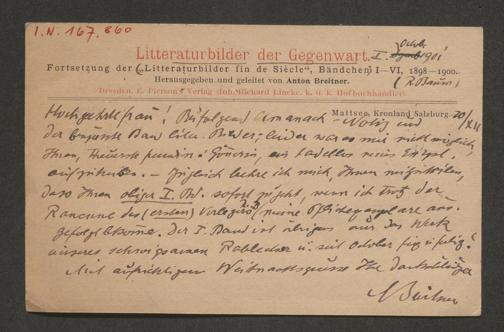 I.N. 167.860
Litteraturbilder der Gegenwart. I. Octob. 1901
Fortsetzung der („Litteraturbilder fin de Siècle“, Bändchen) I—VI, 1898—1900.
Herausgegeben und geleitet von Anton Breitner. (R. Baum)
Dresden, E. Pierson's Verlag (Joh. Richard Lincke, k. u. k. Hofbuchhändler)
Mattsee, Kronland Salzburg. 20/XII
Hochgeehrte Frau! Beifolgend Almanach - Notiz und
der Band Litt. Bilder; leider war es mir nicht möglich,
Ihnen, Gönnerin, ein tadellos neues
— Zugleich beehre ich mich, Ihnen mitzuteilen,
dass Ihnen obiger I. Bd. sofort zugeht, wenn ich trotz der
Rancune des (ersten) Verlegers meine Pflichtexemplare aus-
gefolgt bekomme. Der I. Band ist übrigens nur das Werk
unseres schweigsamen u. seit October fix u. fertig!
Mit aufrichtigem Weihnachtsgrusse Ihr dankschuldiger
A Breitner